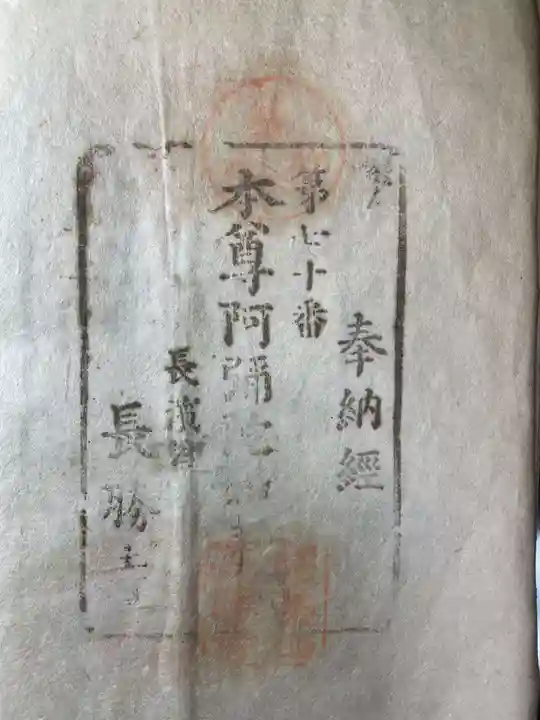 奉納經
第七十番
本尊阿彌陀
長濱
長勝寺